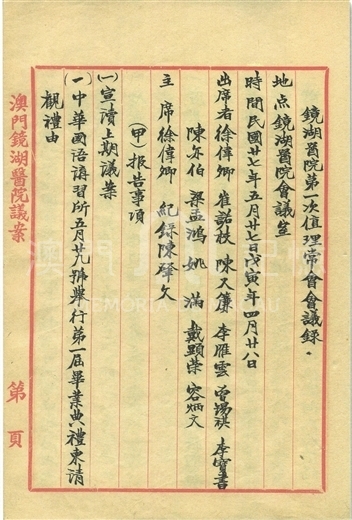 鏡湖醫院第一次值理常會會議錄．
地点鏡湖醫院會議室
時間民國廿七年五月廿七日戊寅年四月廿八日
出席者徐偉卿 崔諾枝 陳又廉 李雁雲 曾楊祺 李寶書
陳亦伯 梁孟鴻 姚滿 戴顕荣 容炳文
主席徐偉卿 紀錄陳肇文
(甲)报告事項
(一)宣讀上期議案
(一)中華國语講習所五月廿九號舉行第一届畢業典禮柬請
觀禮由
澳門鏡湖醫院議案
第 頁